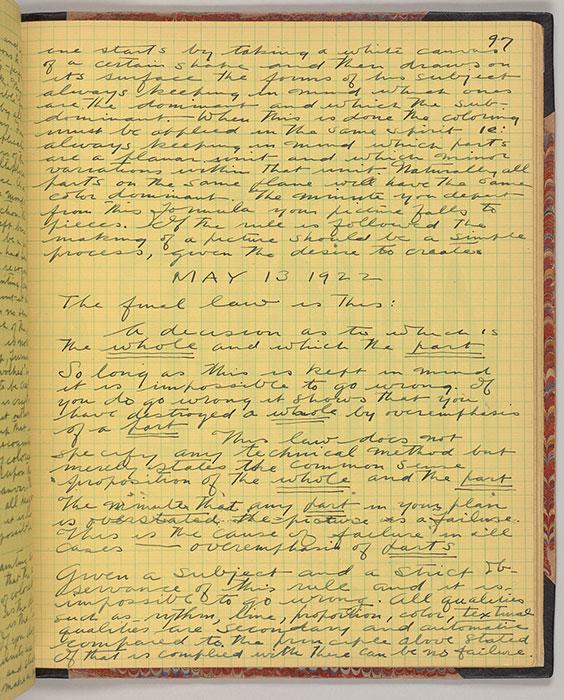 97
one starts by taking a white canvas
of a certain shape and then draws on
its surface the forms of his subject
always keeping in mind which ones
are the dominant and which the sub-
dominant. When this is done the coloring
must be applied in the same spirit ie:
always keeping in mind which parts
are a planar unit and which minor
variations within that unit. Naturally all
parts on the same plane will have the same
color dominant. The minute you depart
from this formula your picture falls to
pieces. If the rule is followed the
making of a picture should be a simple
process, given the desire to create.
MAY 13 1922
The final law is this:
A decision as to which is
the whole and which the part
So long as this is kept in mind
it is impossible to go wrong. If
you do go wrong it shows that you
have destroyed a whole by overemphasis
of a part
This law does not
specify any technical method but
merely states the common sense
proposition of the whole and the part
The minute that any part in your plan
is overstated the picture is a failure.
This is the cause of failure in all
cases — overemphasis of parts
Given a subject and a strict ob-
servance of this rule and it is
impossible to go wrong. All qualities
such as rythm, line, proportion, color, textural
qualities are secondary and automatic
compared to the principle above stated
If that is complied with there can be no failure.